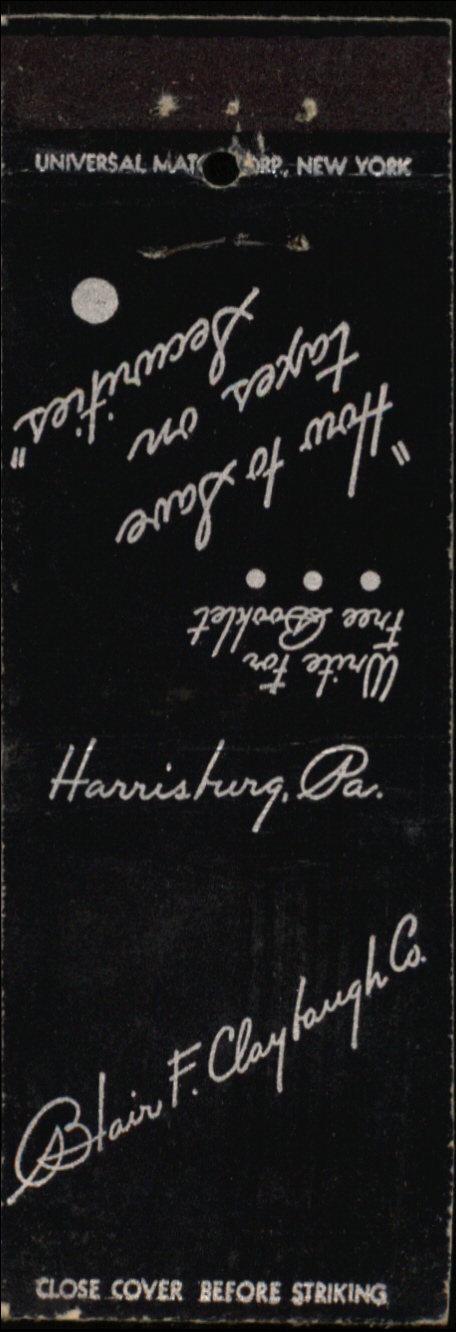 UNIVERSAL MATCH CORP., NEW YORK
Write for
Free Booklet
"How to Save
taxes on
Securities"
Harrisburg, Pa.
Blair F. Claybaugh Co.
CLOSE COVER BEFORE STRIKING